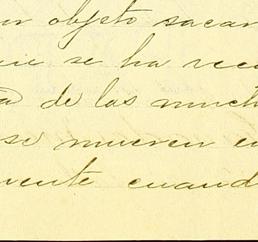 objeto sacar
se ha rec
de las much
se mueren e
mente cuand